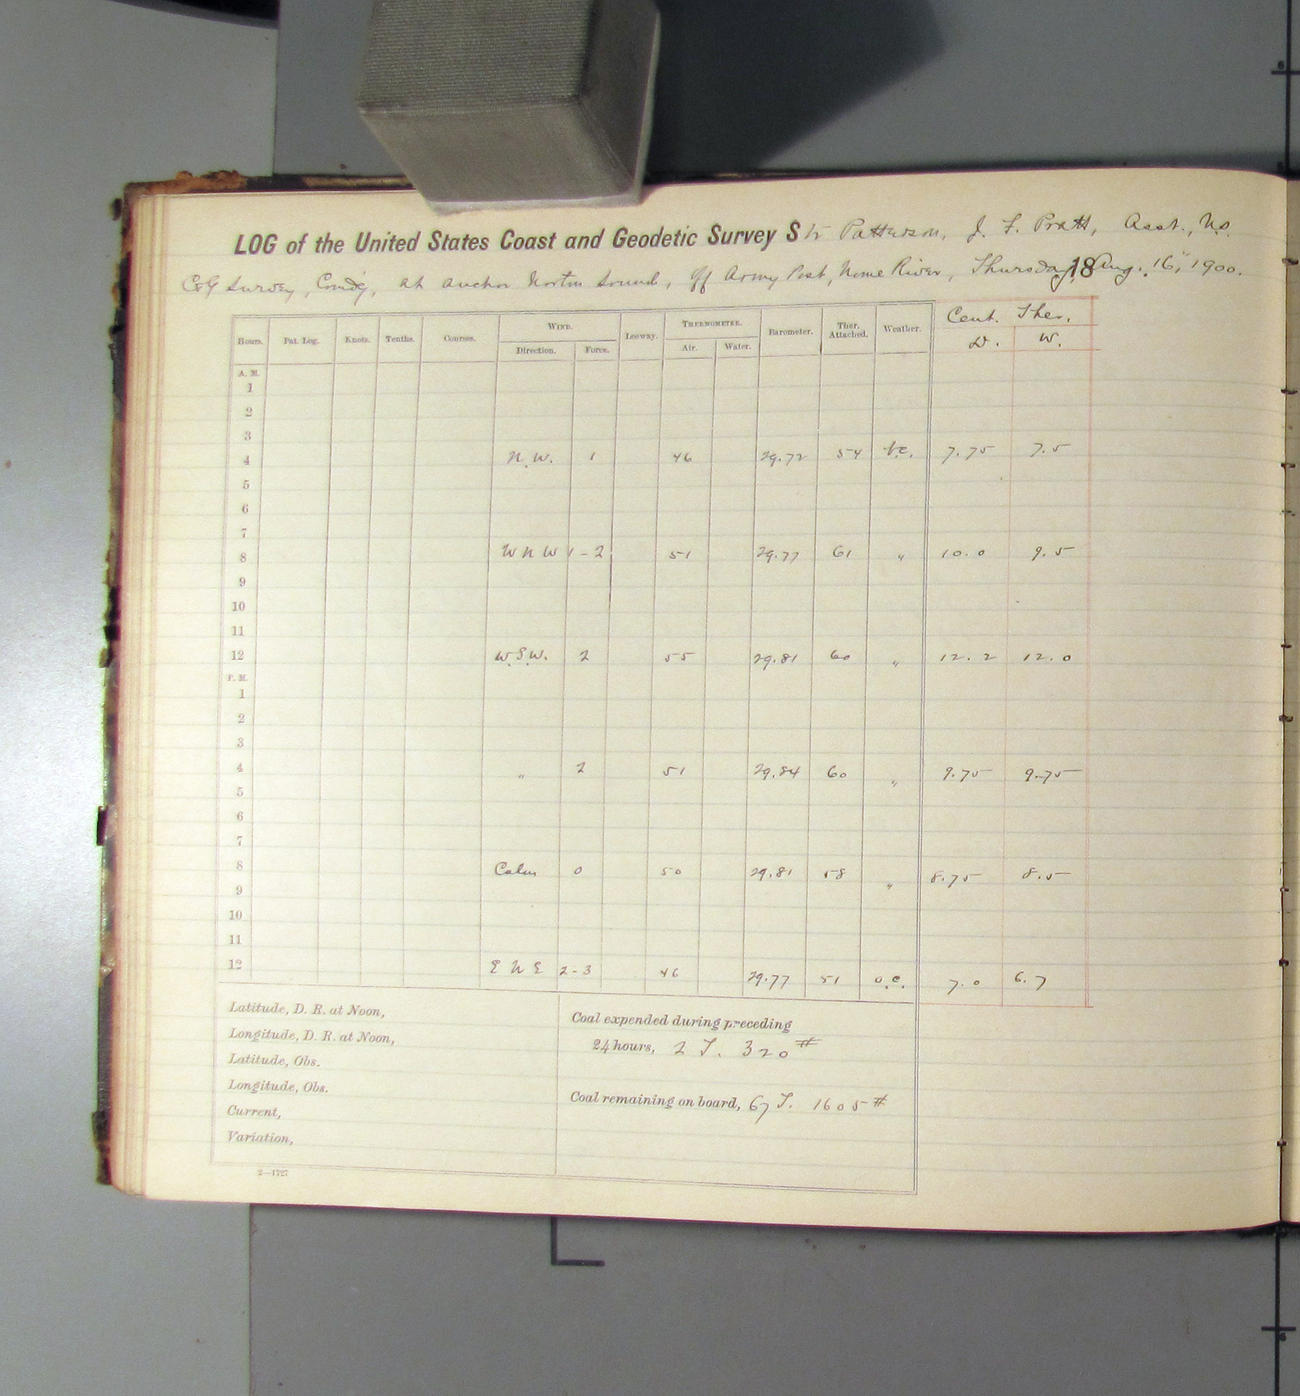 LOG of the United States Coast and Geodetic Survey Str Patterson, J. F. Pratt, Asst., U.S.
C&G Survey, Comd'g, at anchor Norton Sound, Off Army Post, Nome River, Thursday, 18 Aug. 16", 1900.
Hours. Pat. Log. Knots. Tenths. Courses. WIND. Leeway. THERMOMETER. Barometer. Ther. Attached. Weather. Cent. Ther.
Direction. Force. Air. Water. D. W.
A. M.
1
2
3
4 N.W. 1 46 29.72 54 b.c. 7.75 7.5
5
6
7
8 W N W 1-2 51 29.77 61 " 10.0 9.5
9
10
11
12 W.S.W. 2 55 29.81 60 " 12.2 12.0
P. M.
1
2
3
4 " 2 51 29.84 60 " 9.75 9.75
5
6
7
8 Calm 0 50 29.81 58 " 8.75 8.5
9
10
11
12 E N E 2-3 46 29.77 51 o.c. 7.0 6.7
Latitude, D. R. at Noon,
Longitude, D. R. at Noon,
Latitude, Obs.
Longitude, Obs.
Current,
Variation,
Coal expended during preceding
24 hours, 2 T. 320#
Coal remaining on board, 67 T. 1605#
2—1727